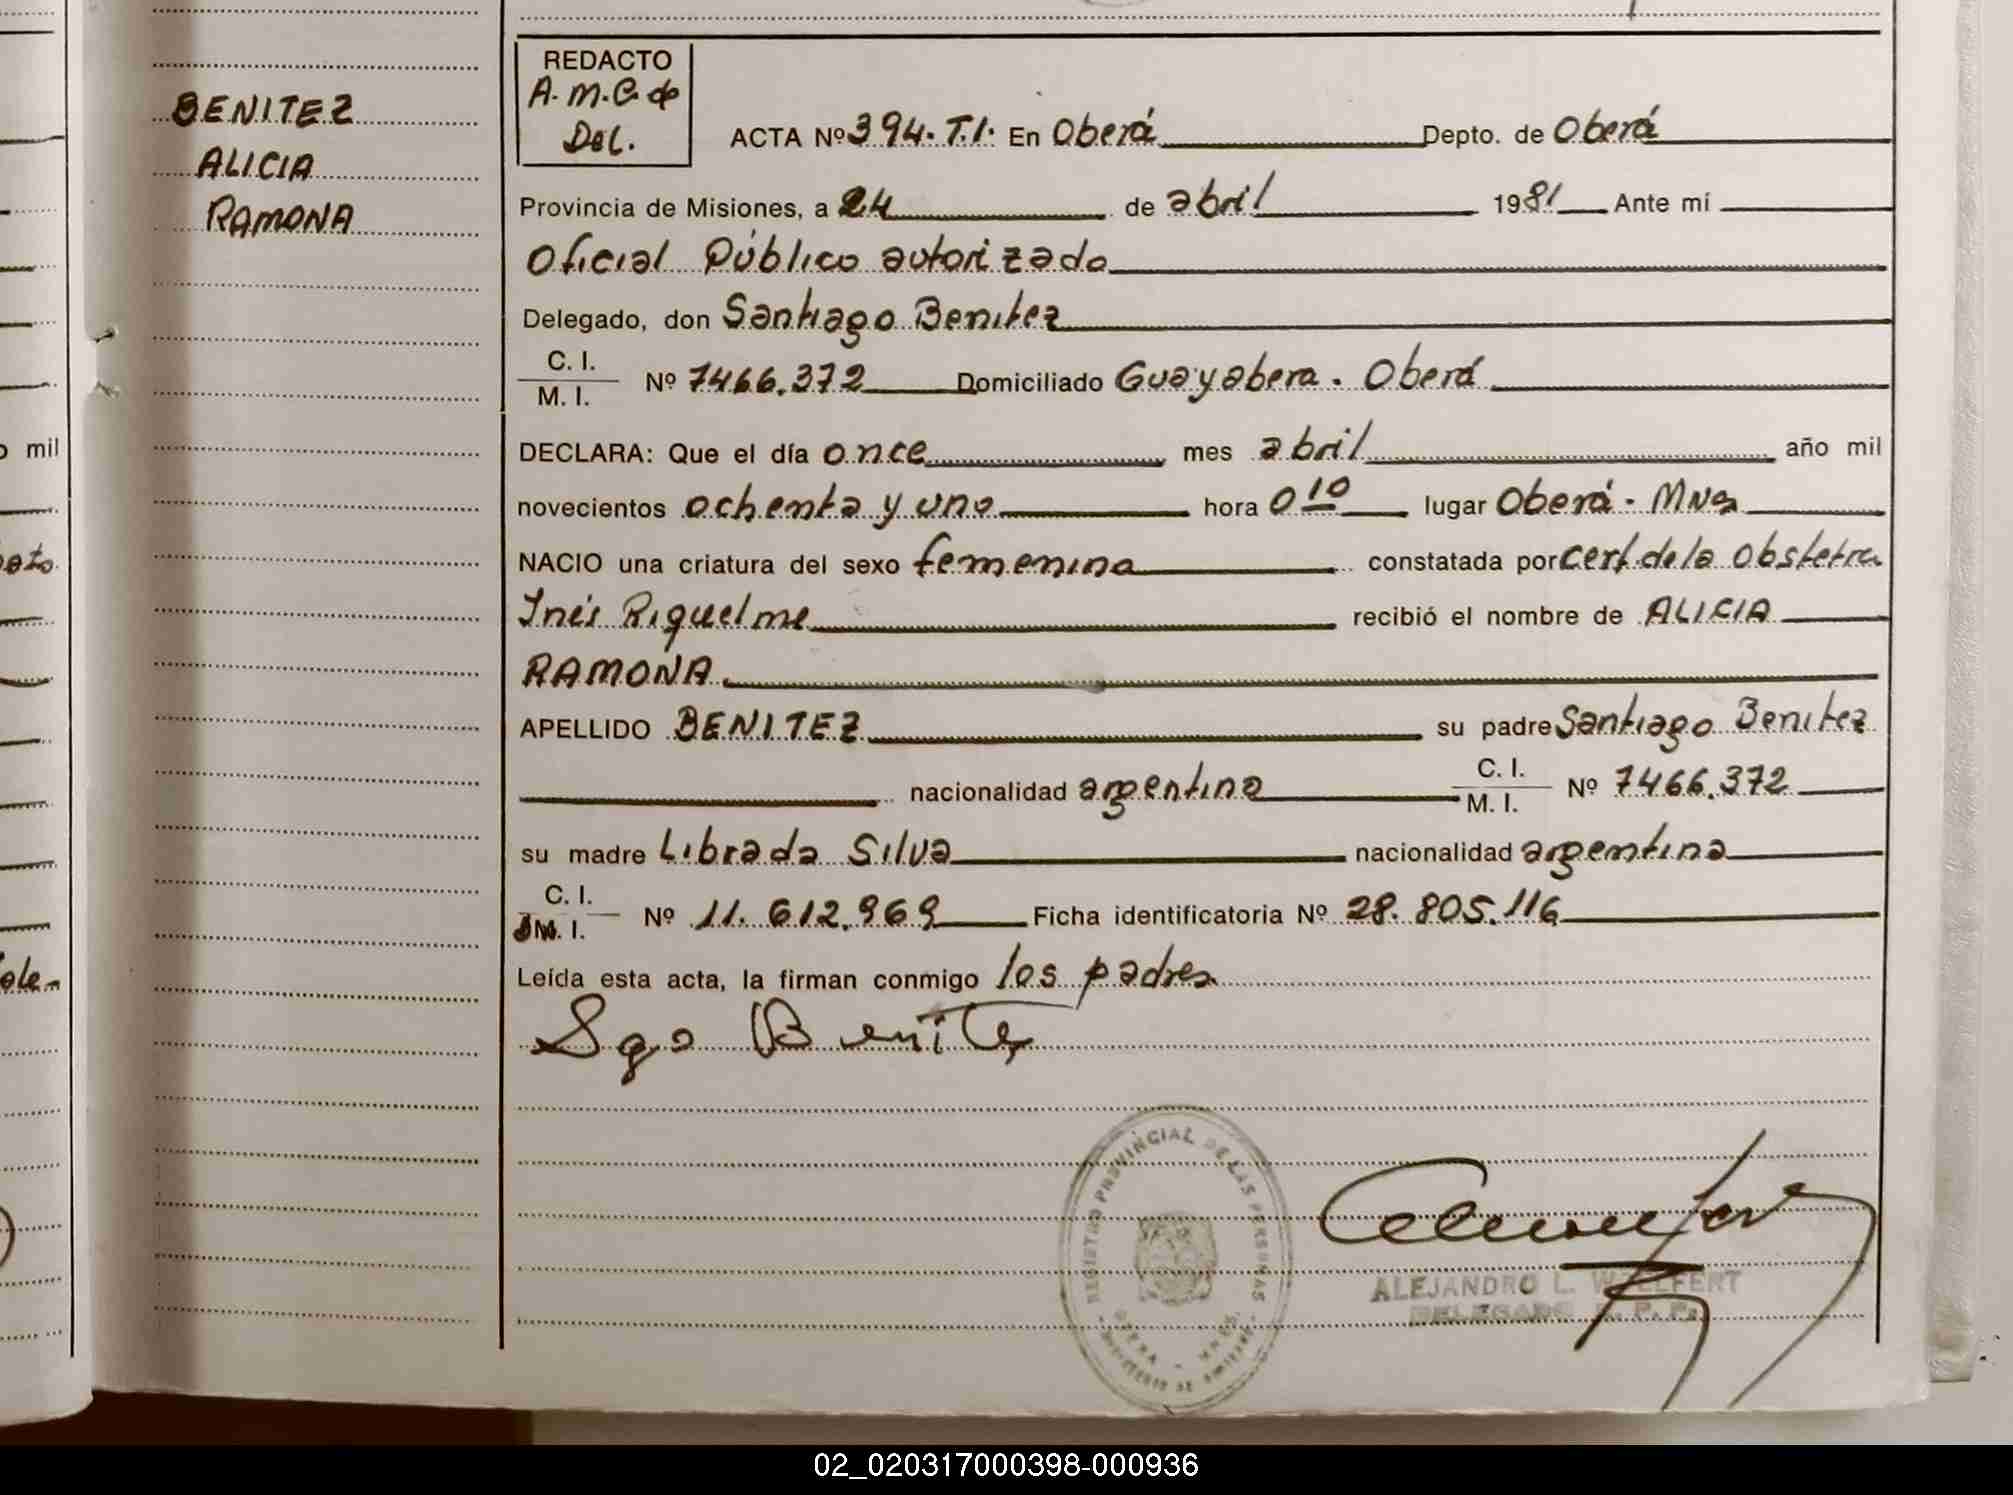 BENITEZ
ALICIA
RAMONA
REDACTO
A.M.C. de
Del.
ACTA Nº 394.T.I. En Oberá Depto. de Oberá
Provincia de Misiones, a 24 de abril 1981 Ante mí
Oficial Público autorizado
Delegado, don Santiago Benitez
C. I.
M. I. Nº 7466.372 Domiciliado Guayabera. Oberá
DECLARA: Que el día once mes abril año mil
novecientos ochenta y uno hora 0 10 lugar Oberá - Mnes
NACIO una criatura del sexo femenina constatada por cert. de la Obstetra
Inés Riquelme recibió el nombre de ALICIA
RAMONA
APELLIDO BENITEZ su padre Santiago Benitez
nacionalidad argentina C. I. M. I. Nº 7466.372
su madre Librada Silva nacionalidad argentina
C. I.
M. I. Nº 11.612.969 Ficha identificatoria Nº 28.805.116
Leída esta acta, la firman conmigo los padres
Sgo Benitez
REGISTRO PROVINCIAL DE LAS PERSONAS
OBERA - MNES.
ALEJANDRO L. WELFERT
DELEGADO R. P. P.
mil
02_020317000398-000936